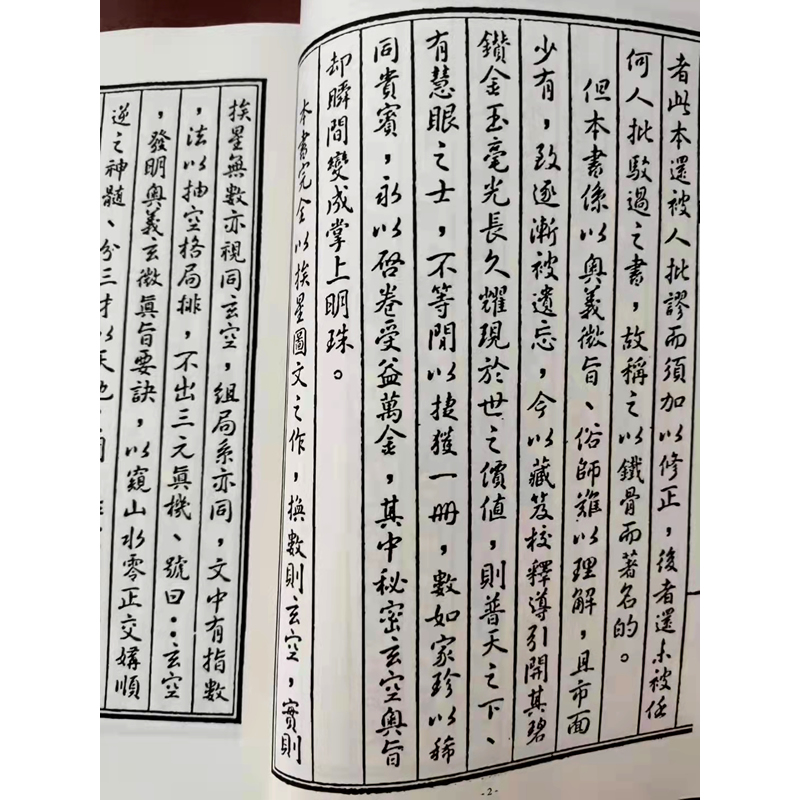 者此本還被人批謬而須加以修正，後者還未被任
何人批駁過之書，故稱之以鐵骨而著名的。
但本書係以奧義微旨、俗師難以理解，且市面
少有，致逐漸被遺忘，今以藏笈校釋導引開其碧
鑽金玉毫光長久耀現於世之價值，則普天之下、
有慧眼之士，不等閒以捷獲一冊，數如家珍以稀
同貴賓，永以啓卷受益萬金，其中秘密玄空奧旨
却瞬間變成掌上明珠。
本書完全以挨星圖文之作，換數則玄空，實則
挨星無數亦視同玄空，組局系亦同，文中有指數
，法以抽空格局排，不出三元真機、號曰：玄空
，發明奧義玄微真旨要訣，以窺山水零正交媾順
逆之神髓、分三才以天地
-2-